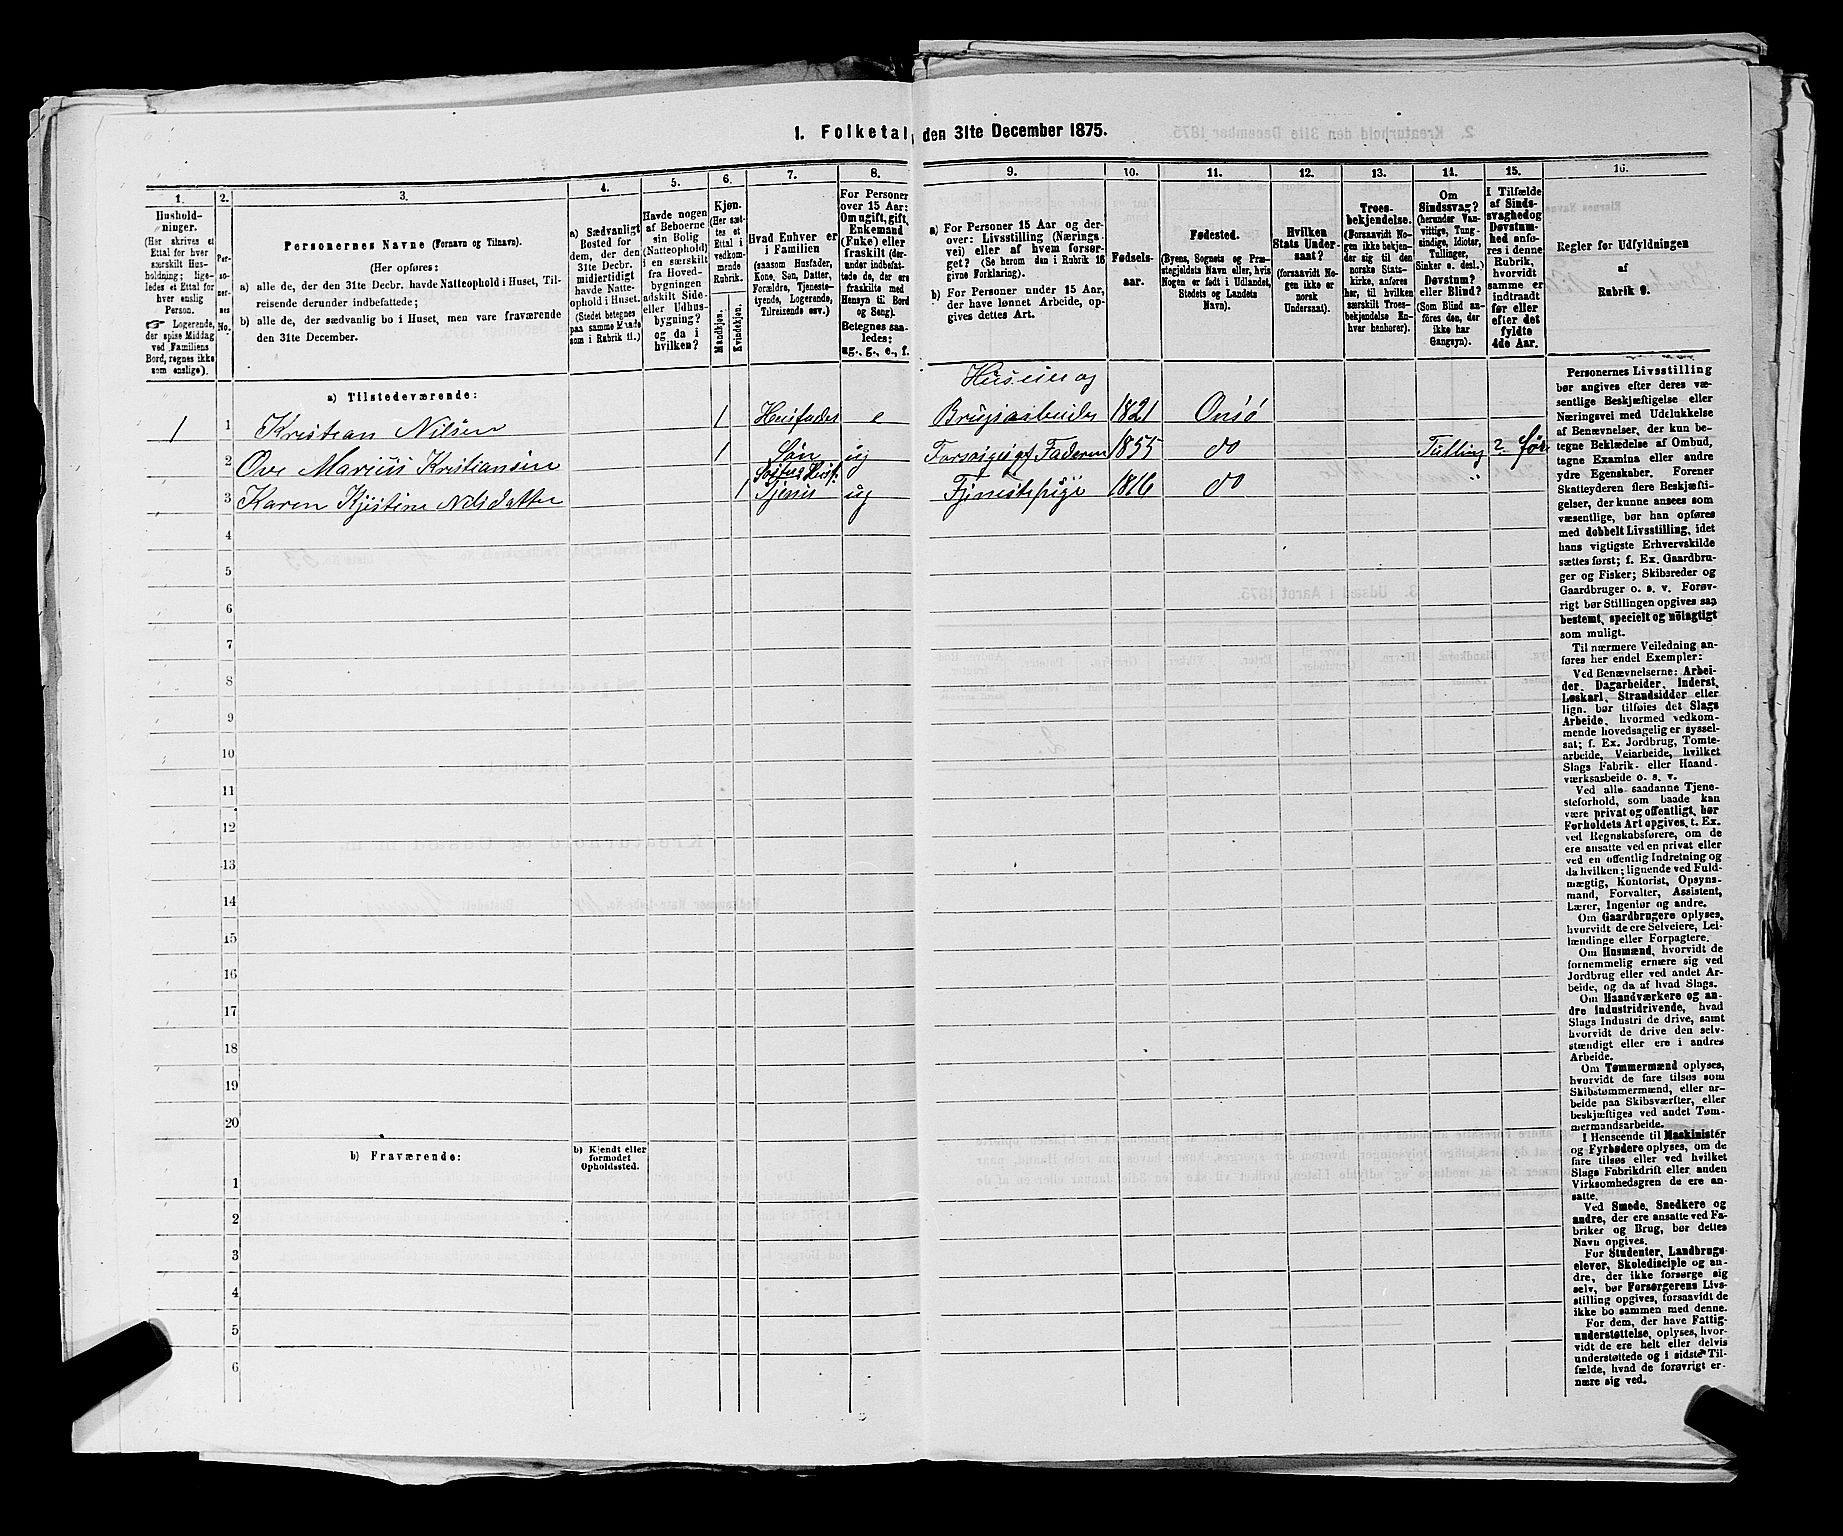 1. Folketal den 31te December 1875.
1.
Hushold-
ninger.
(Her skrives et
Ettal for hver
særskilt Hus-
holdning; lige-
ledes et Ettal for
hver enslig
Person.
☞ Logerende,
der spise Middag
ved Familiens
Bord, regnes ikke
som enslige).
2.
Per-
so-
ner-
nes
No.
3.
Personernes Navne (Fornavn og Tilnavn).
(Her opføres:
a) alle de, der den 31te Decbr. havde Natteophold i Huset, Til-
reisende derunder indbefattede;
b) alle de, der sædvanlig bo i Huset, men vare fraværende
den 31te December.
4.
a) Sædvanligt
Bosted for
dem, der den
31te Decbr.
midlertidigt
havde Natte-
ophold i Huset.
(Stedet betegnes
paa samme Maade
som i Rubrik 11.)
5.
Havde nogen
af Beboerne
sin Bolig
(Natteophold)
i en særskilt
fra Hoved-
bygningen
adskilt Side-
eller Udhus-
bygning?
og da i
hvilken?
6.
Kjøn.
(Her sæt-
tes et
Ettal i
vedkom-
mende
Rubrik.
Mandkjøn.
Kvindekjøn.
7.
Hvad Enhver er
i Familien
(saasom Husfader,
Kone, Søn, Datter,
Forældre, Tjeneste-
tyende, Logerende,
Tilreisende osv.)
8.
For Personer
over 15 Aar:
Om ugift, gift,
Enkemand
(Enke) eller
fraskilt (der-
under indbefat-
tede de, der ere
fraskilte med
Hensyn til Bord
og Seng).
Betegnes saa-
ledes:
ug., g., e., f.
9.
a) For Personer 15 Aar og der-
over: Livsstilling (Nærings-
vei) eller af hvem forsør-
get? (Se herom den i Rubrik 16
givne Forklaring).
b) For Personer under 15 Aar,
der have lønnet Arbeide, op-
gives dettes Art.
10.
Fødsels-
aar.
11.
Fødested.
(Byens, Sognets og Præ-
stegjeldets Navn eller, hvis
Nogen er født i Udlandet,
Stedets og Landets
Navn).
12.
Hvilken
Stats Under-
saat?
(forsaavidt No-
gen ikke er
norsk
Undersaat).
13.
Troes-
bekjendelse.
(Forsaavidt No-
gen ikke bekjen-
der sig til den
norske Stats-
kirke, anføres
her, til hvilken
særskilt Troes-
bekjendelse En-
hver henhører).
14.
Om
Sindssvag?
(herunder Van-
vittige, Tung-
sindige, Idioter,
Tullinger,
Sinker o. desl.)
Døvstum?
eller Blind?
(Som Blind an-
føres den, der
ikke har
Gangsyn).
15.
I Tilfælde
af Sinds-
svaghed og
Døvstum-
hed anfø-
res i denne
Rubrik,
hvorvidt
samme er
indtraadt
før eller
efter det
fyldte
4de Aar.
16.
Regler for Udfyldningen
af
Rubrik 9.
a) Tilstedeværende:
Huseier og
1 1 Kristian Nilsen 1 Husfader e Brugsarbeider 1821 Onsø
2 Ove Marius Kristiansen 1 Søn ug Forsørges af Faderen 1855 do Tulling før
3 Karen Kjistine Nilsdatter 1 Tjenis ug Tjenestepige 1816 do "
4
5
6
7
8
9
10
11
12
13
14
15
16
17
18
19
20
b) Fraværende:
b) Kjendt eller
formodet
Opholdssted.
1
2
3
4
5
6
Personernes Livsstilling
bør angives efter deres væ-
sentlige Beskjæftigelse eller
Næringsvei med Udelukkelse
af Benævnelser, der kun be-
tegne Beklædelse af Ombud,
tagne Examina eller andre
ydre Egenskaber. Forener
Skatteyderen flere Beskjæfti-
gelser, der kunne ansees som
væsentlige, bør han opføres
med dobbelt Livsstilling, idet
hans vigtigste Erhvervskilde
sættes først; f. Ex. Gaardbru-
ger og Fisker; Skibsreder og
Gaardbruger o. s. v. Forøv-
rigt bør Stillingen opgives saa
bestemt, specielt og nöiagtigt
som muligt.
Til nærmere Veiledning an-
føres her endel Exempler:
Ved Benævnelserne: Arbei-
der, Dagarbeider, Inderst,
Løskarl, Strandsidder eller
lign. bør tilføies det Slags
Arbeide, hvormed vedkom-
mende hovedsagelig er syssel-
sat; f. Ex. Jordbrug, Tomte-
arbeide, Veiarbeide, hvilket
Slags Fabrik- eller Haand-
værksarbeide o. s. v.
Ved alle saadanne Tjene-
steforhold, som baade kan
være privat og offentligt, bør
Forholdets Art opgives, t. Ex.
ved Regnskabsførere, om de
ere ansatte ved en privat eller
ved en offentlig Indretning og
da hvilken; lignende ved Fuld-
mægtig, Kontorist, Opsyns-
mand, Forvalter, Assistent,
Lærer, Ingeniør og andre.
Om Gaardbrugere oplyses,
hvorvidt de ere Selveiere, Lei-
lændinge eller Forpagtere.
Om Husmænd, hvorvidt de
fornemmelig ernære sig ved
Jordbrug eller ved andet Ar-
beide, og da af hvad Slags.
Om Haandværkere og an-
dre Industridrivende, hvad
Slags Industri de drive, samt
hvorvidt de drive den selv-
stændigt eller ere i andres
Arbeide.
Om Tømmermænd oplyses,
hvorvidt de fare tilsøs som
Skibstømmermænd, eller ar-
beide paa Skibsværfter, eller
beskjæftiges ved andet Tøm-
mermandsarbeide.
I Henseende til Maskinister
og Fyrbødere oplyses, om de
fare tilsøs eller ved hvilket
Slags Fabrikdrift eller anden
Virksomhedsgren de ere an-
satte.
Ved Smede, Snedkere og
andre, der ere ansatte ved Fa-
briker og Brug, bør dettes
Navn opgives.
For Studenter, Landbrugs-
elever, Skoledisciple og an-
dre, der ikke forsørge sig
selv, bør Forsørgerens Livs-
stilling opgives, forsaavidt de
ikke bo sammen med denne.
For dem, der have Fattig-
understøttelse, oplyses, hvor-
vidt de ere helt eller delvis
understøttede og i sidste Til-
fælde, hvad de forøvrigt er-
nære sig ved.